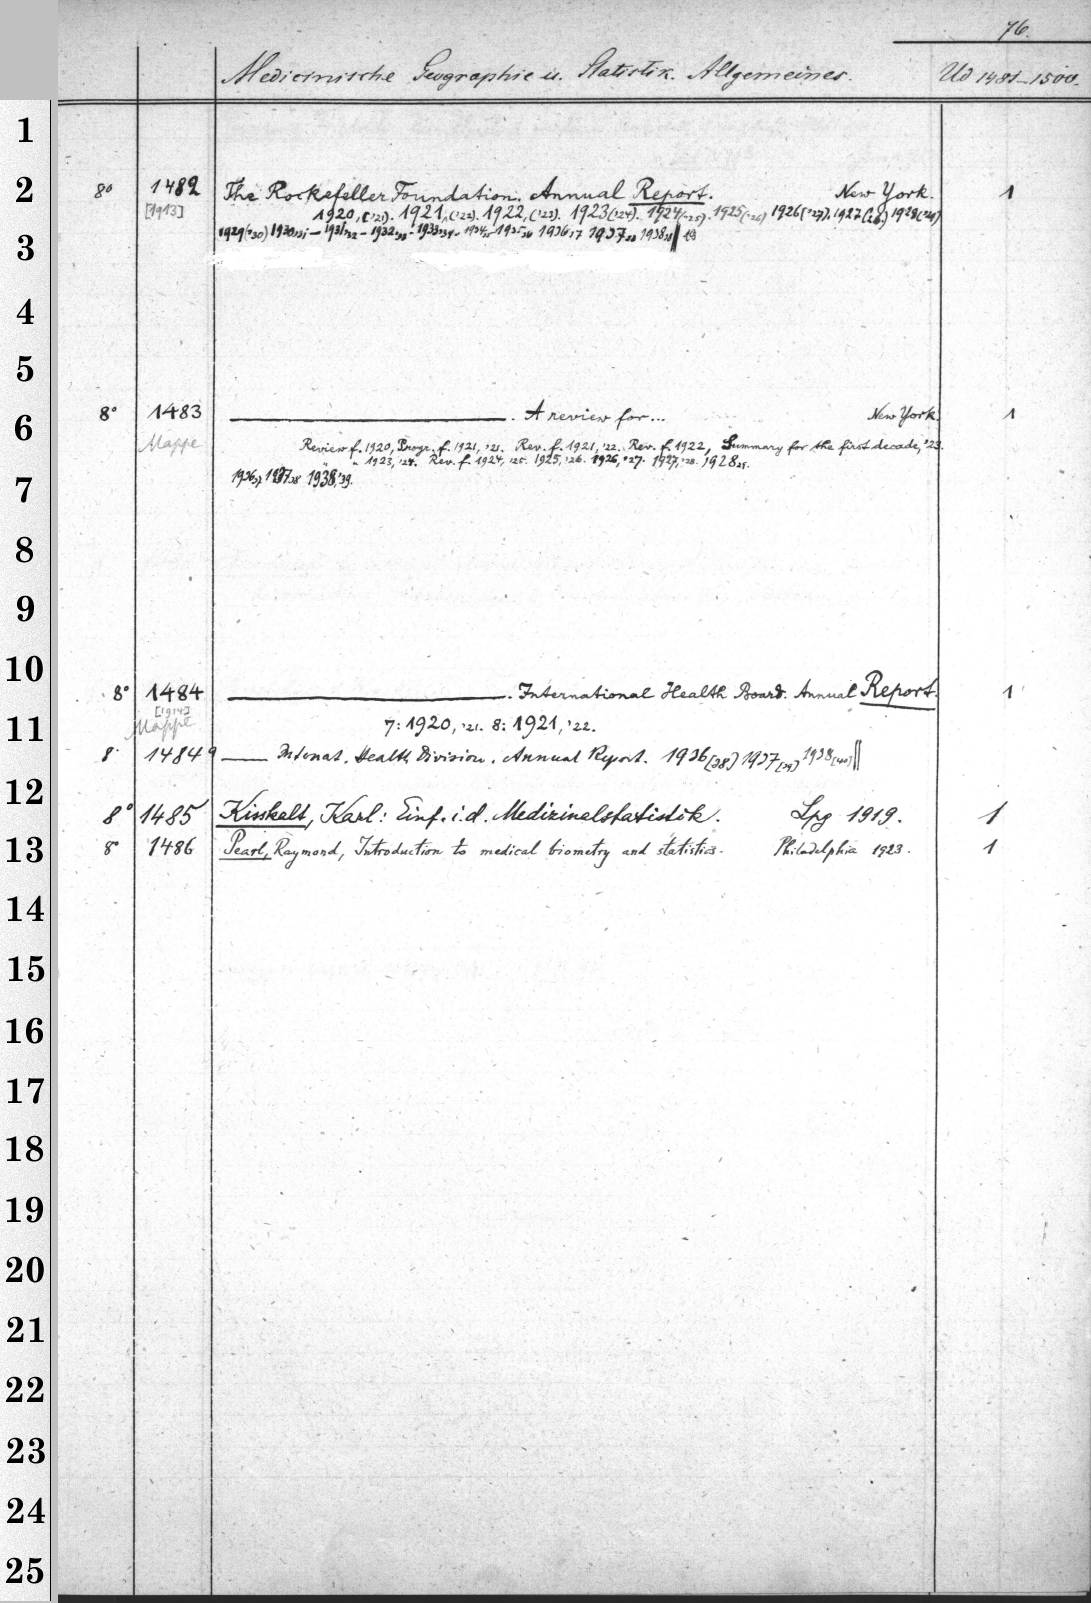 76.
Medicinische Geographie u. Statistik. Allgemeines. Ud 1481–1500.
1
2 8° 1482 The Rockefeller Foundation. Annual Report. New York. 1
[1913] 1920, ('21). 1921, ('22). 1922, ('23). 1923 ('24). 1924 ('25). 1925 ('26) 1926 ('27), 1927 (28) 1928 ('29)
3 1929 ('30) 1930/31 – 1931/32 – 1932/33 - 1933/34 - 1934/35 1935/36 1936/37 1937/38 1938/39 ||
4
5
6 8° 1483 ———. A review for... New York. 1
Mappe Review f. 1920, Progr. f. 1921, '21. Rev. f. 1921, '22. Rev. f. 1922, Summary for the first decade, '23.
" 1923, '24. Rev. f. 1924, '25. 1925, '26. 1926, '27. 1927, '28. 1928 29.
7 1936,37 1937,38 1938,'39.
8
9
10 8° 1484 ———. International Health Board. Annual Report. 1
[1914]
11 Mappe 7: 1920, '21. 8: 1921, '22.
8° 1484a —— Internat. Health Division. Annual Report. 1936 [38] 1937 [39] 1938 [40] ||
12 8° 1485 Kisskalt, Karl: Einf. i. d. Medizinalstatistik. Lpg 1919. 1
13 8° 1486 Pearl, Raymond, Introduction to medical biometry and statistics. Philadelphia 1923. 1
14
15
16
17
18
19
20
21
22
23
24
25